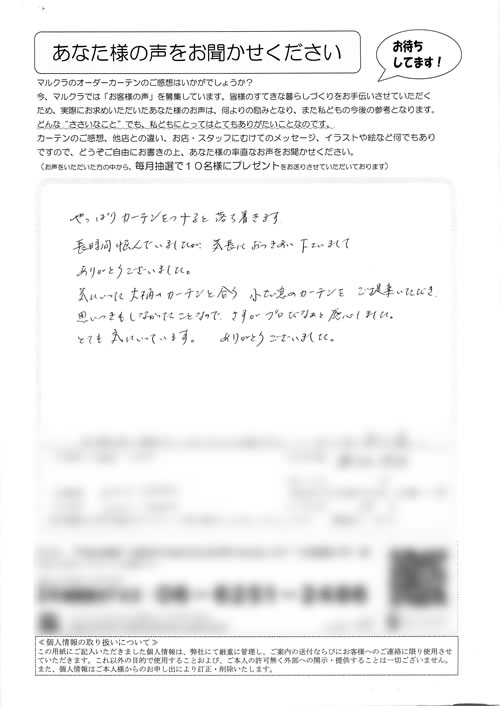 あなた様の声をお聞かせください
お待ち
してます！
マルクラのオーダーカーテンのご感想はいかがでしょうか？
今、マルクラでは「お客様の声」を募集しています。皆様のすてきな暮らしづくりをお手伝いさせていただく
ため、実際にお求めいただいたあなた様のお声は、何よりの励みとなり、また私どもの今後の参考となります。
どんな“ささいなこと”でも、私どもにとってはとてもありがたいことなのです。
カーテンのご感想、他店との違い、お店・スタッフにむけてのメッセージ、イラストや絵など何でもあり
ですので、どうぞご自由にお書きの上、あなた様の率直なお声をお聞かせください。
（お声をいただいた方の中から、毎月抽選で１０名様にプレゼントをお送りさせていただいております）
やっぱりカーテンをつけると落ち着きます
長時間悩んでいましたが、気長におつきあい下さいまして
ありがとうございました。
気にいった大柄のカーテンと合う 小さい窓のカーテンを ご提案いただき、
思いつきもしなかったことなので、さすがプロだなぁと感心しました。
とても気にいっています。 ありがとうございました。
06-6251-2486
≪個人情報の取り扱いについて≫
この用紙にご記入いただきました個人情報は、弊社にて厳重に管理し、ご案内の送付ならびにお客様へのご連絡に限り使用させ
ていただきます。これ以外の目的で使用することおよび、ご本人の許可無く外部への開示・提供することは一切ございません。
また、個人情報はご本人様からのお申し出により訂正・削除いたします。